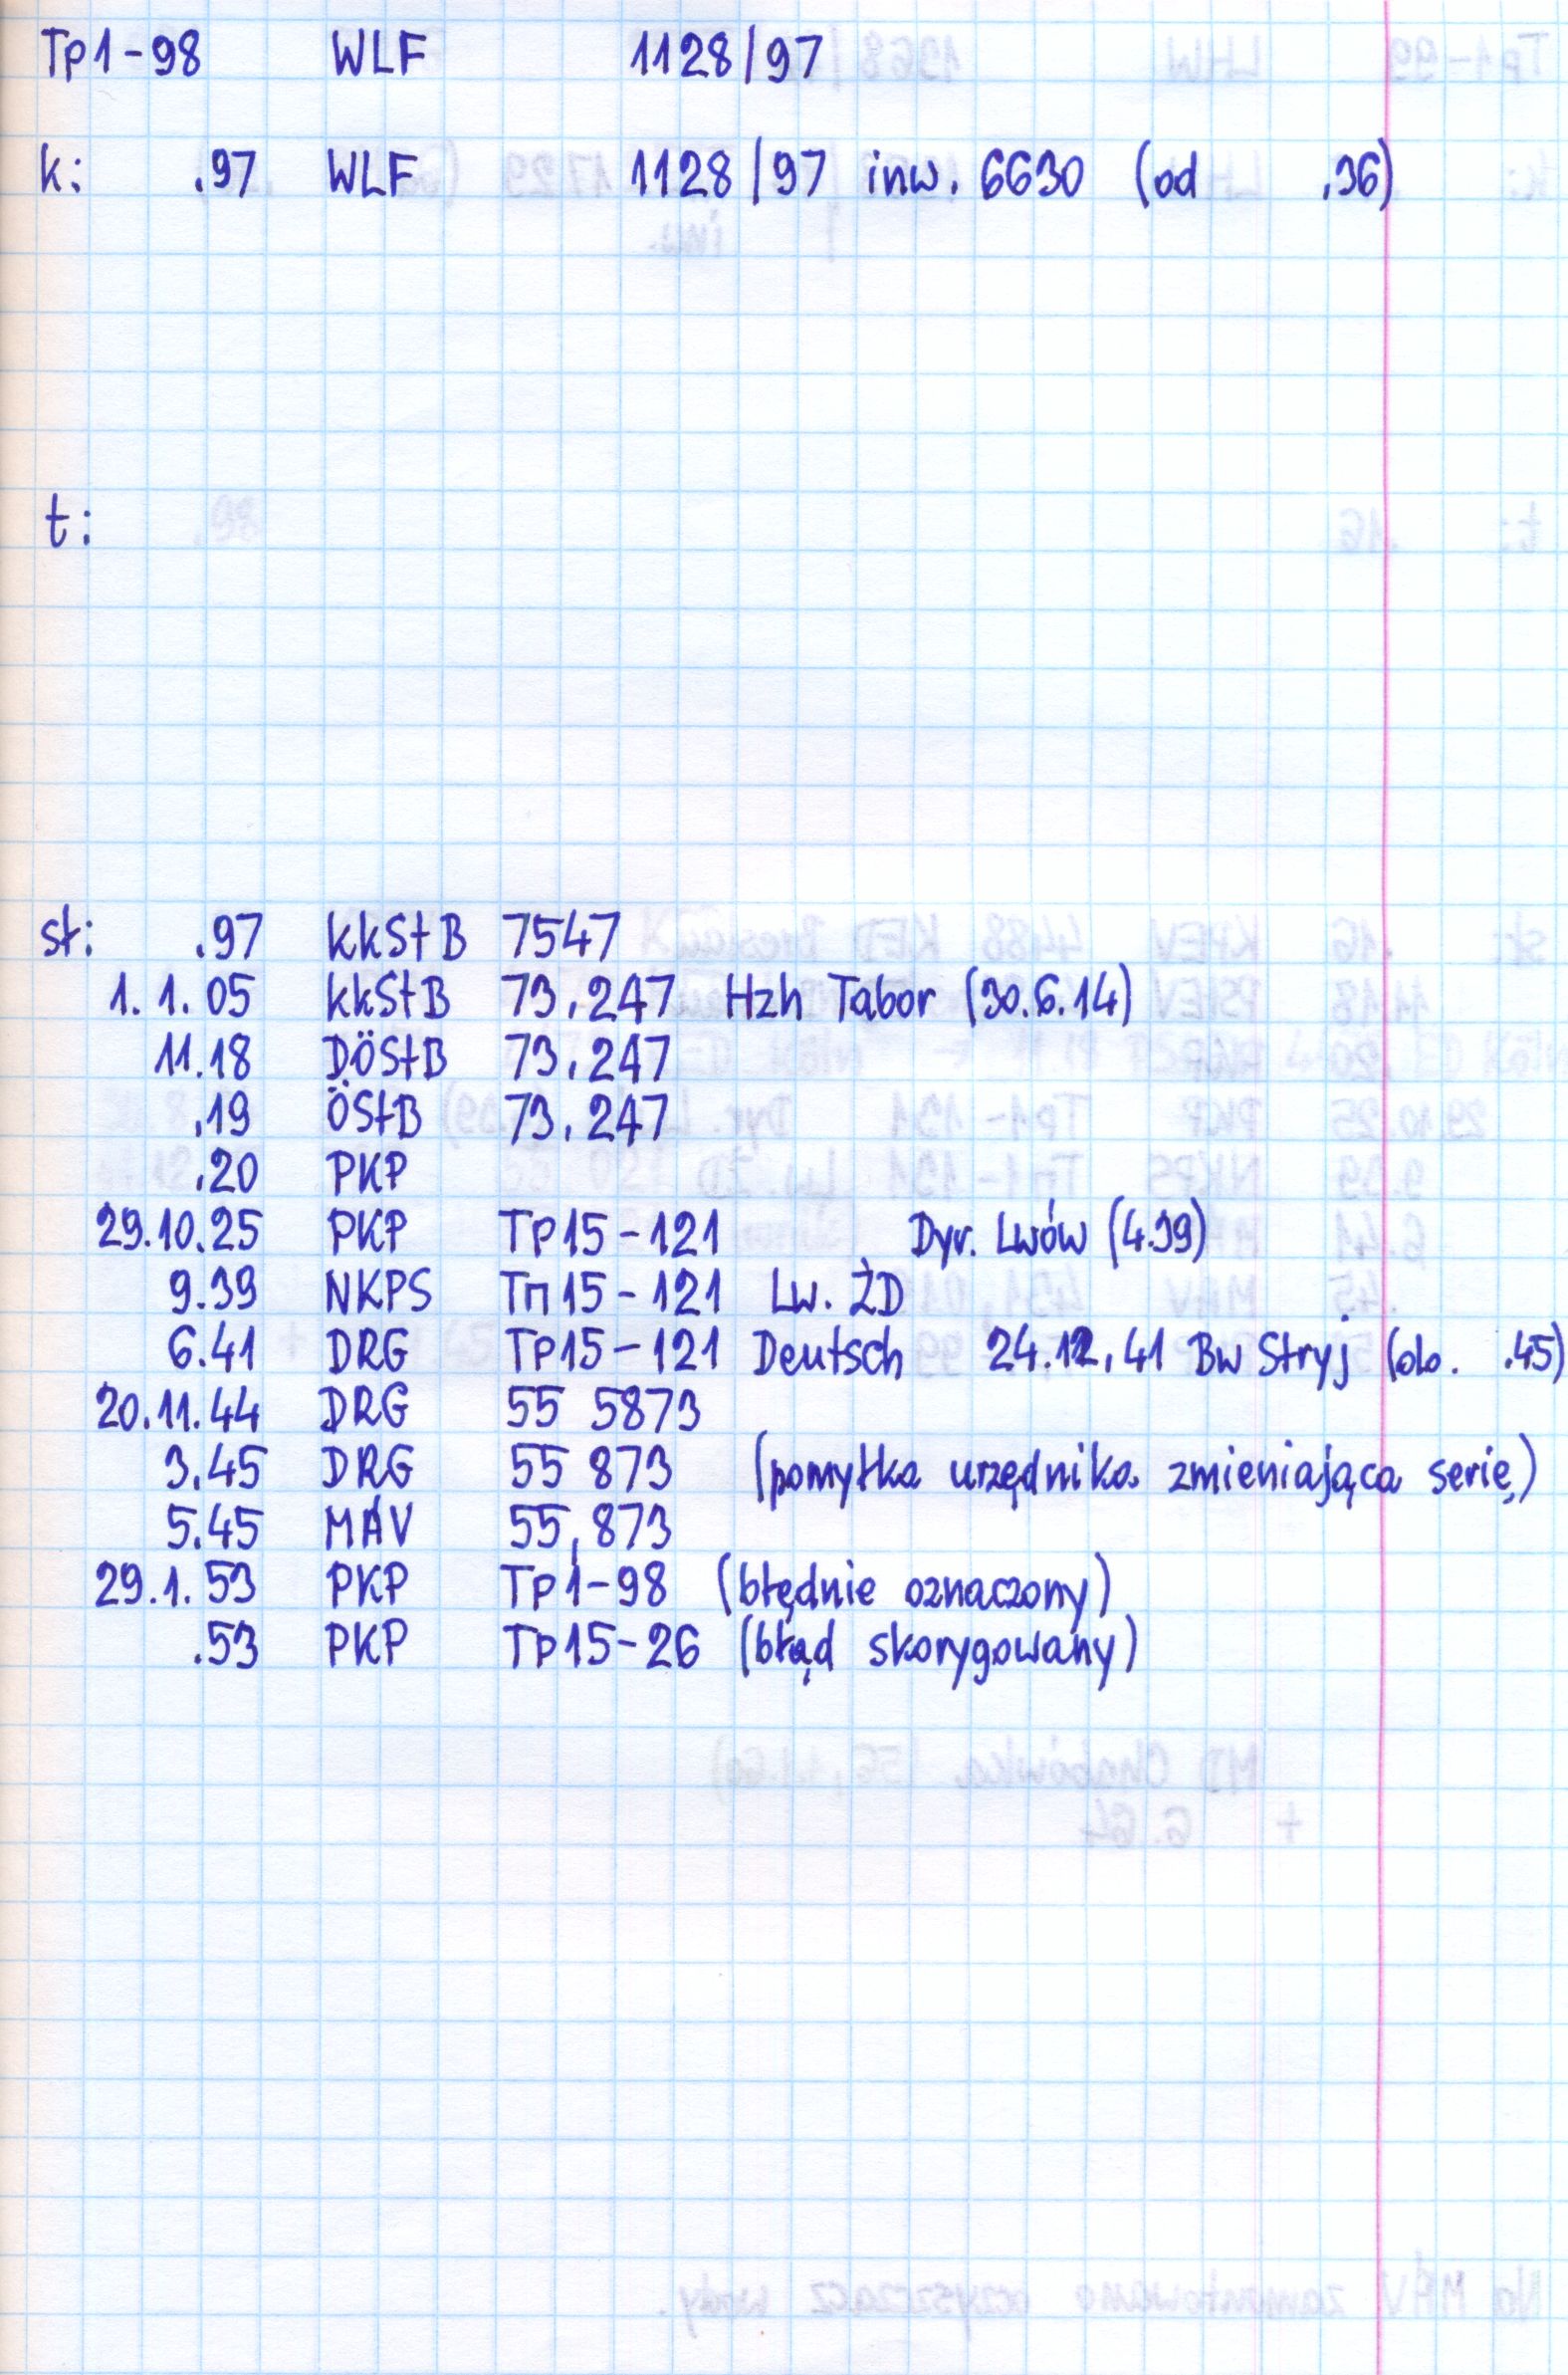 Tp1-98 WLF 1128/97
k: .97 WLF 1128/97 inw. 6630 (od .36)
t:
st: .97 kkStB 7547
1.1.05 kkStB 73.247 Hzh Tabor (30.6.14)
11.18 DÖStB 73.247
.19 ÖStB 73.247
.20 PKP
29.10.25 PKP Tp15-121 Dyr. Lwów (4.39)
9.39 NKPS Тп15-121 Lw. ŻD
6.41 DRG Tp15-121 Deutsch 24.12.41 Bw Stryj (do. .45)
20.11.44 DRG 55 5873
3.45 DRG 55 873 (pomyłka urzędnika zmieniająca serię)
5.45 MÁV 55,873
29.1.53 PKP Tp1-98 (błędnie oznaczony)
.53 PKP Tp15-26 (błąd skorygowany)